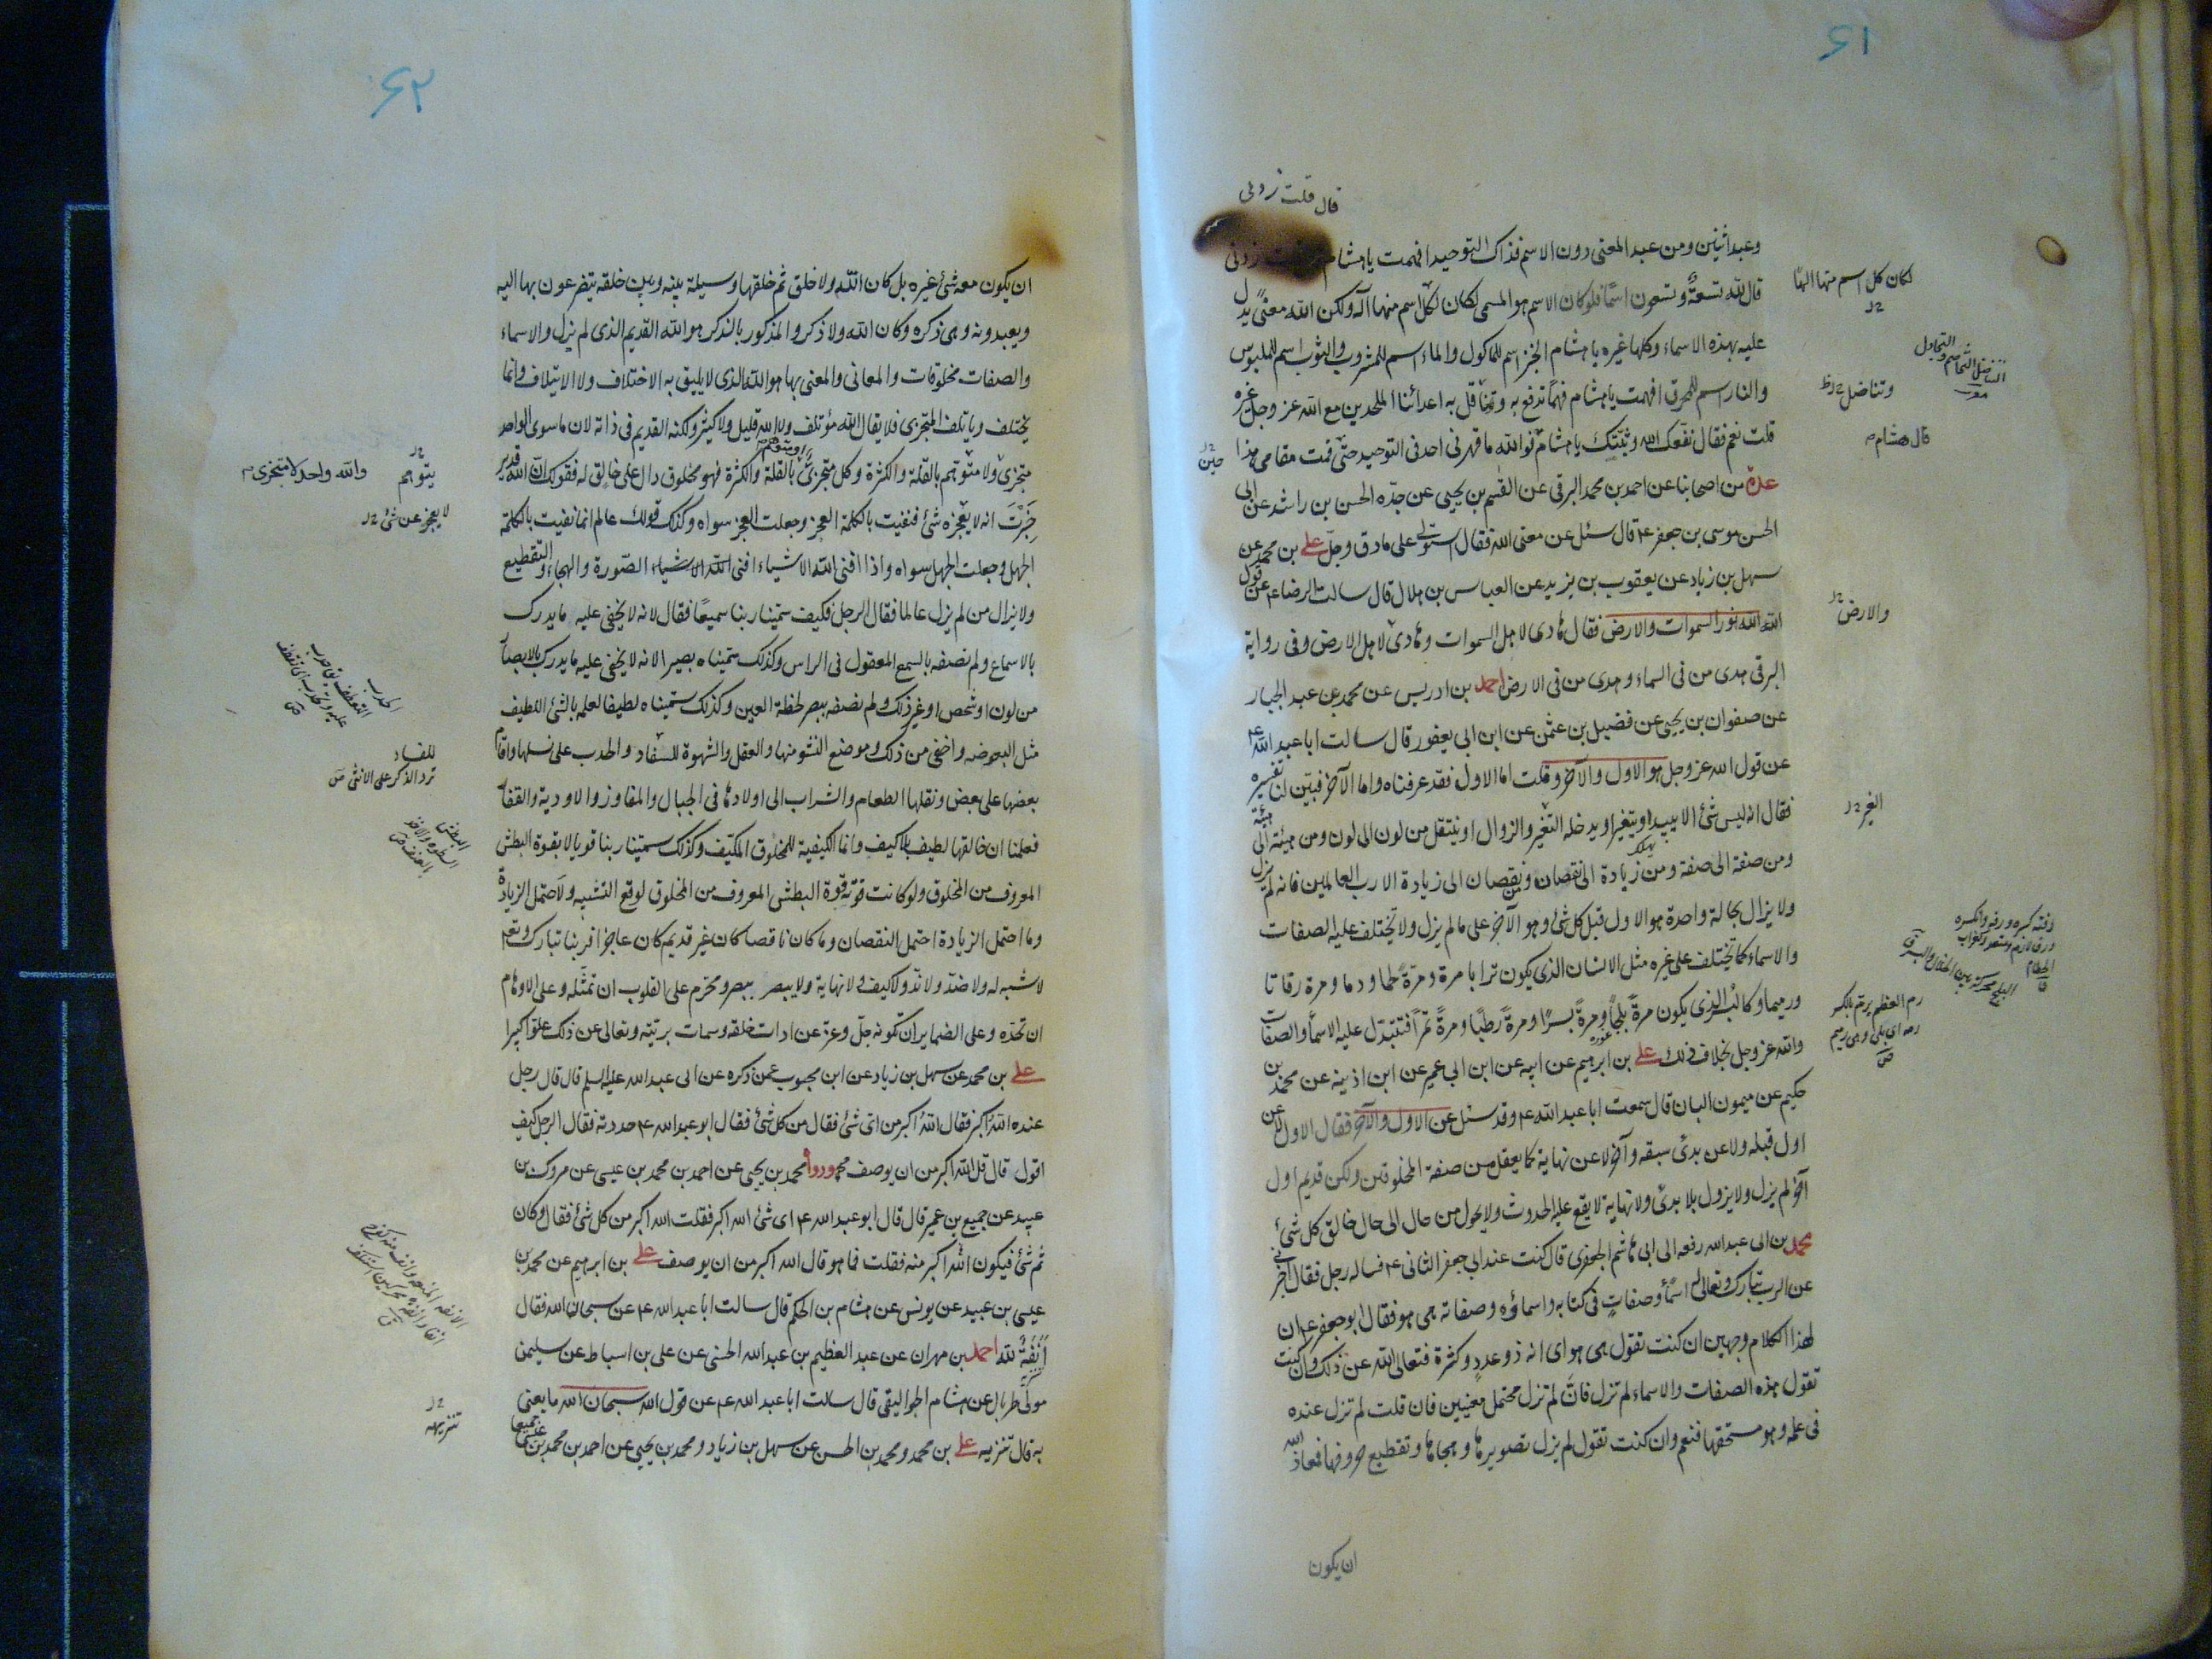 ٦١
قال قلت زدنی
وعبد اثنین ومن عبد المعنی دون الاسم فذاک التوحید افهمت یا هشام زدنی
قال لله تسعةٌ وتسعون اسمًا فلو کان الاسم هو المسمی لکان لکل اسم منها اله ولکن الله معنًی یدل
علیه بهذه الاسماء وکلها غیره یا هشام الخبز اسم للماکول والماء اسم للمشروب والثوب اسم للملبوس
والنار اسم للمحرق افهمت یا هشام فهمًا تدفع به وتناقل به اعدائنا الملحدین مع الله عز وجل غیره
قلت نعم فقال نفعک الله وثبتک یا هشام فوالله ما قهرنی احد فی التوحید حتی قمت مقامی هذا
عدة من اصحابنا عن احمد بن محمد البرقی عن القسم بن یحیی عن جدّه الحسن بن راشد عن ابی
الحسن موسی بن جعفر ع قال سئل عن معنی الله فقال استولی علی ما دق وجلّ علی بن محمد عن
سهل بن زیاد عن یعقوب بن یزید عن العباس بن هلال قال سالت الرضا ع عن قول
الله الله نور السموات والارض فقال هادی لاهل السموات وهادی لاهل الارض وفی روایة
البرقی هدی من فی السماء وهدی من فی الارض احمد بن ادریس عن محمد بن عبد الجبار
عن صفوان بن یحیی عن فضیل بن عثمن عن ابن ابی یعفور قال سالت ابا عبد الله ع
عن قول الله عز وجل هو الاول والآخر وقلت اما الاول فقد عرفناه واما الآخر فبیّن لنا تفسیره
فقال انه لیس شئ الا یبید او یتغیر او یدخله التغیر والزوال او ینتقل من لون الی لون ومن هیئة الی هیئة
ومن صفة الی صفة ومن زیادة الی نقصان ومن نقصان الی زیادة الا رب العالمین فانه لم یزل
ولا یزال بحالة واحدة هو الاول قبل کل شئ وهو الآخر علی ما لم یزل ولا تختلف علیه الصفات
والاسماء کما تختلف علی غیره مثل الانسان الذی یکون ترابا مرة ومرّة لحما ودما ومرة رفاتا
ورمیما وکالبُسر الذی یکون مرةً بلحًا ومرةً بسرًا ومرةً رطبًا ومرةً تمرًا فتتبدّل علیه الاسماء والصفات
والله عز وجل بخلاف ذلک علی بن ابرهیم عن ابیه عن ابن ابی عمیر عن ابن اذینه عن محمد بن
حکیم عن میمون البان قال سمعت ابا عبد الله ع وقد سئل عن الاول والآخر فقال الاول لا عن
اول قبله ولا عن بدئ سبقه وآخر لا عن نهایة کما یعقل من صفة المخلوقین ولکن قدیم اول
آخر لم یزل ولا یزول بلا بدئ ولا نهایة لا یقع علیه الحدوث ولا یحول من حال الی حال خالق کل شئ
محمد بن ابی عبد الله رفعه الی ابی هاشم الجعفری قال کنت عند ابی جعفر الثانی ع فساله رجل فقال اخبرنی
عن الرب تبارک وتعالی له اسماءٌ وصفاتٌ فی کتابه واسماؤه وصفاته هی هو فقال ابو جعفر ع ان
لهذا الکلام وجهین ان کنت تقول هی هو ای انه ذو عددٍ وکثرة فتعالی الله عن ذلک وان کنت
تقول هذه الصفات والاسماء لم تزل فانّ لم تزل محتمل معنیین فان قلت لم تزل عنده
فی علمه وهو مستحقها فنعم وان کنت تقول لم یزل تصویرها وهجاها وتقطیع حروفها فمعاذ الله
ان یکون
لکان کل اسم منها الهًا
وتناضل
قال هشام
حین
والارض
الغیر
رم العظم یرم بالکسر
رمه ای بلی وهی رمیم
٦٢
ان یکون معه شئ غیره بل کان الله ولا خلق ثم خلقها وسیلة بینه وبین خلقه یتضرعون بها الیه
ویعبدونه وهی ذکره وکان الله ولا ذکر والمذکور بالذکر هو الله القدیم الذی لم یزل والاسماء
والصفات مخلوقات والمعانی والمعنی بها هو الله الذی لا یلیق به الاختلاف ولا الایتلاف وانما
یختلف ویاتلف المتجزی فلا یقال الله مؤتلف ولا الله قلیل ولا کثیر ولکنه القدیم فی ذاته لان ما سوی الواحد
متجزی ولا متوهم بالقلة والکثرة وکل متجزئ بالقلة والکثرة فهو مخلوق دال علی خالق له فقولک انّ الله قدیر
خبّرتَ انه لا یعجزه شئ فنفیت بالکلمة العجز وجعلت العجز سواه وکذلک قولک عالم انما نفیت بالکلمة
الجهل وجعلت الجهل سواه واذا افنی الله الاشیاء افنی الله الاشیاء الصّورة والهجاء والتقطیع
ولا یزال من لم یزل عالما فقال الرجل فکیف سمّینا ربنا سمیعًا فقال لانه لا یخفی علیه ما یدرک
بالاسماع ولم نصفه بالسمع المعقول فی الراس وکذلک سمّیناه بصیرا لانه لا یخفی علیه ما یدرک بالابصار
من لون او شخص او غیر ذلک ولم نصفه ببصر لحظة العین وکذلک سمّیناه لطیفا لعلمه بالشئ اللطیف
مثل البعوضه واخفی من ذلک وموضع النشو منها والعقل والشهوة للسفاد والحدب علی نسلها واقام
بعضها علی بعض ونقلها الطعام والشراب الی اولادها فی الجبال والمفاوز والاودیة والقفار
فعلمنا ان خالقها لطیف بلا کیف وانما الکیفیة للمخلوق المکیّف وکذلک سمّینا ربنا قویا لا بقوة البطش
المعروف من المخلوق ولو کانت قوّته قوة البطش المعروف من المخلوق لوقع التشبیه ولاحتمل الزیادة
وما احتمل الزیادة احتمل النقصان وما کان ناقصا کان غیر قدیم کان عاجزا فربنا تبارک وتع
لا شبه له ولا ضدّ ولا ندّ ولا کیف ولا نهایة ولا یبصر ببصر ومحرّم علی القلوب ان تمثّله وعلی الاوهام
ان تحدّه وعلی الضمایر ان تکونه جلّ وعزّ عن ادات خلقه وسمات بریّته وتعالی عن ذلک علوّا کبیرا
علی بن محمد عن سهل بن زیاد عن ابن محبوب عمن ذکره عن ابی عبد الله علیه السلم قال قال رجل
عنده اللهُ اکبر فقال اللهُ اکبر من ای شئ فقال من کل شئ فقال ابو عبد الله ع حددته فقال الرجل کیف
اقول قال قل الله اکبر من ان یوصف ورواه محمد بن یحیی عن احمد بن محمد بن عیسی عن مروک بن
عبید عن جمیع بن عمیر قال قال ابو عبد الله ع ای شئ الله اکبر فقلت الله اکبر من کل شئ فقال وکان
ثم شئ فیکون الله اکبر منه فقلت فما هو قال الله اکبر من ان یوصف علی بن ابرهیم عن محمد بن
عیسی بن عبید عن یونس عن هشام بن الحکم قال سالت ابا عبد الله ع عن سبحان الله فقال
اَنَفَةٌ لله احمد بن مهران عن عبد العظیم بن عبد الله الحسنی عن علی بن اسباط عن سلیمن
مولی طربال عن هشام الجوالیقی قال سالت ابا عبد الله ع عن قول الله سبحان الله ما یعنی
به قال تنزیه علی بن محمد ومحمد بن الحسن عن سهل بن زیاد ومحمد بن یحیی عن احمد بن محمد بن عیسی جمیعا
یتوهم
والله واحد لا متجزی
لا یعجز عن شئ
للفساد
نزو الذکر علی الانثی
تنزیهه